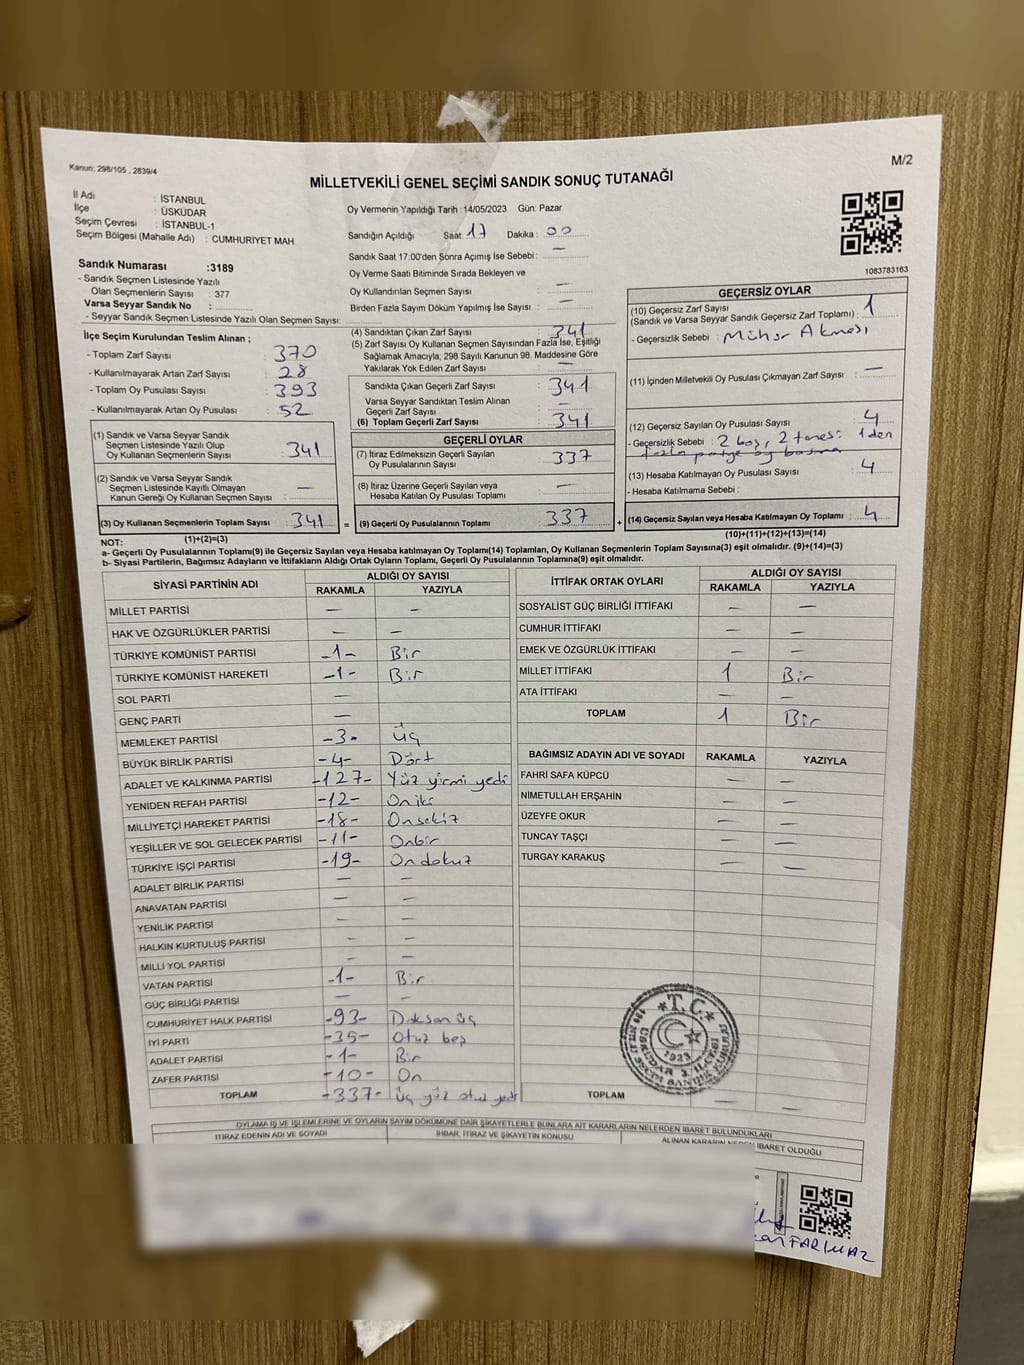 Kanun; 298/105 , 2839/4
M/2
MİLLETVEKİLİ GENEL SEÇİMİ SANDIK SONUÇ TUTANAĞI
İl Adı : İSTANBUL
İlçe : ÜSKÜDAR
Seçim Çevresi : İSTANBUL-1
Seçim Bölgesi (Mahalle Adı) : CUMHURİYET MAH.
Oy Vermenin Yapıldığı Tarih :14/05/2023 Gün: Pazar
Sandığın Açıldığı Saat : 17 Dakika : 00
Sandık Saat 17:00'den Sonra Açımış İse Sebebi : —
Oy Verme Saati Bitiminde Sırada Bekleyen ve
Oy Kullandırılan Seçmen Sayısı : —
Birden Fazla Sayım Döküm Yapılmış İse Sayısı : —
1083783163
Sandık Numarası :3189
- Sandık Seçmen Listesinde Yazılı
Olan Seçmenlerin Sayısı : 377
Varsa Seyyar Sandık No :
- Seyyar Sandık Seçmen Listesinde Yazılı Olan Seçmen Sayısı:
İlçe Seçim Kurulundan Teslim Alınan ;
- Toplam Zarf Sayısı : 370
- Kullanılmayarak Artan Zarf Sayısı : 28
- Toplam Oy Pusulası Sayısı : 393
- Kullanılmayarak Artan Oy Pusulası : 52
(1) Sandık ve Varsa Seyyar Sandık
Seçmen Listesinde Yazılı Olup
Oy Kullanan Seçmenlerin Sayısı : 341
(2) Sandık ve Varsa Seyyar Sandık
Seçmen Listesinde Kayıtlı Olmayan
Kanun Gereği Oy Kullanan Seçmen Sayısı : —
(3) Oy Kullanan Seçmenlerin Toplam Sayısı : 341
(1)+(2)=(3)
(4) Sandıktan Çıkan Zarf Sayısı : 341
(5) Zarf Sayısı Oy Kullanan Seçmen Sayısından Fazla İse, Eşitliği
Sağlamak Amacıyla, 298 Sayılı Kanunun 98. Maddesine Göre
Yakılarak Yok Edilen Zarf Sayısı : —
Sandıkta Çıkan Geçerli Zarf Sayısı : 341
Varsa Seyyar Sandıktan Teslim Alınan
Geçerli Zarf Sayısı : —
(6) Toplam Geçerli Zarf Sayısı : 341
GEÇERLİ OYLAR
(7) İtiraz Edilmeksizin Geçerli Sayılan
Oy Pusulalarının Sayısı : 337
(8) İtiraz Üzerine Geçerli Sayılan ve
Hesaba Katılan Oy Pusulası Toplamı : —
= (9) Geçerli Oy Pusulalarının Toplamı : 337
GEÇERSİZ OYLAR
(10) Geçersiz Zarf Sayısı
(Sandık ve Varsa Seyyar Sandık Geçersiz Zarf Toplamı) : 1
- Geçersizlik Sebebi : Mühür Akması
(11) İçinden Milletvekili Oy Pusulası Çıkmayan Zarf Sayısı : —
(12) Geçersiz Sayılan Oy Pusulası Sayısı : 4
- Geçersizlik Sebebi : 2 boş, 2 tanesi 1den
fazla partiye oy basma
(13) Hesaba Katılmayan Oy Pusulası Sayısı : 4
- Hesaba Katılmama Sebebi :
+ (14) Geçersiz Sayılan veya Hesaba Katılmayan Oy Toplamı : 4
(10)+(11)+(12)+(13)=(14)
NOT:
a- Geçerli Oy Pusulalarının Toplamı(9) ile Geçersiz Sayılan veya Hesaba katılmayan Oy Toplamı(14) Toplamları, Oy Kullanan Seçmenlerin Toplam Sayısına(3) eşit olmalıdır. (9)+(14)=(3)
b- Siyasi Partilerin, Bağımsız Adayların ve İttifakların Aldığı Ortak Oyların Toplamı, Geçerli Oy Pusulalarının Toplamına(9) eşit olmalıdır.
SİYASİ PARTİNİN ADI ALDIĞI OY SAYISI
RAKAMLA YAZIYLA
MİLLET PARTİSİ — —
HAK VE ÖZGÜRLÜKLER PARTİSİ — —
TÜRKİYE KOMÜNİST PARTİSİ -1- Bir
TÜRKİYE KOMÜNİST HAREKETİ -1- Bir
SOL PARTİ —
GENÇ PARTİ —
MEMLEKET PARTİSİ -3- üç
BÜYÜK BİRLİK PARTİSİ -4- Dört
ADALET VE KALKINMA PARTİSİ -127- Yüz yirmi yedi
YENİDEN REFAH PARTİSİ -12- Oniki
MİLLİYETÇİ HAREKET PARTİSİ -18- Onsekiz
YEŞİLLER VE SOL GELECEK PARTİSİ -11- Onbir
TÜRKİYE İŞÇİ PARTİSİ -19- Ondokuz
ADALET BİRLİK PARTİSİ — —
ANAVATAN PARTİSİ — —
YENİLİK PARTİSİ — —
HALKIN KURTULUŞ PARTİSİ — —
MİLLİ YOL PARTİSİ — —
VATAN PARTİSİ -1- Bir
GÜÇ BİRLİĞİ PARTİSİ — —
CUMHURİYET HALK PARTİSİ -93- Doksan üç
İYİ PARTİ -35- Otuz beş
ADALET PARTİSİ -1- Bir
ZAFER PARTİSİ -10- On
TOPLAM -337- üç yüz otuz yedi
İTTİFAK ORTAK OYLARI ALDIĞI OY SAYISI
RAKAMLA YAZIYLA
SOSYALİST GÜÇ BİRLİĞİ İTTİFAKI — —
CUMHUR İTTİFAKI — —
EMEK VE ÖZGÜRLÜK İTTİFAKI — —
MİLLET İTTİFAKI 1 Bir
ATA İTTİFAKI — —
TOPLAM 1 Bir
BAĞIMSIZ ADAYIN ADI VE SOYADI RAKAMLA YAZIYLA
FAHRİ SAFA KÜPCÜ — —
NİMETULLAH ERŞAHİN — —
ÜZEYFE OKUR — —
TUNCAY TAŞÇI — —
TURGAY KARAKUŞ — —
T.C.
1923
TOPLAM — —
OYLAMA İŞ VE İŞLEMLERİNE VE OYLARIN SAYIM DÖKÜMÜNE DAİR ŞİKAYETLERLE BUNLARA AİT KARARLARIN NELERDEN İBARET BULUNDUKLARI
İTİRAZ EDENİN ADI VE SOYADI İHBAR, İTİRAZ VE ŞİKAYETİN KONUSU ALINAN KARARIN NEDEN İBARET OLDUĞU